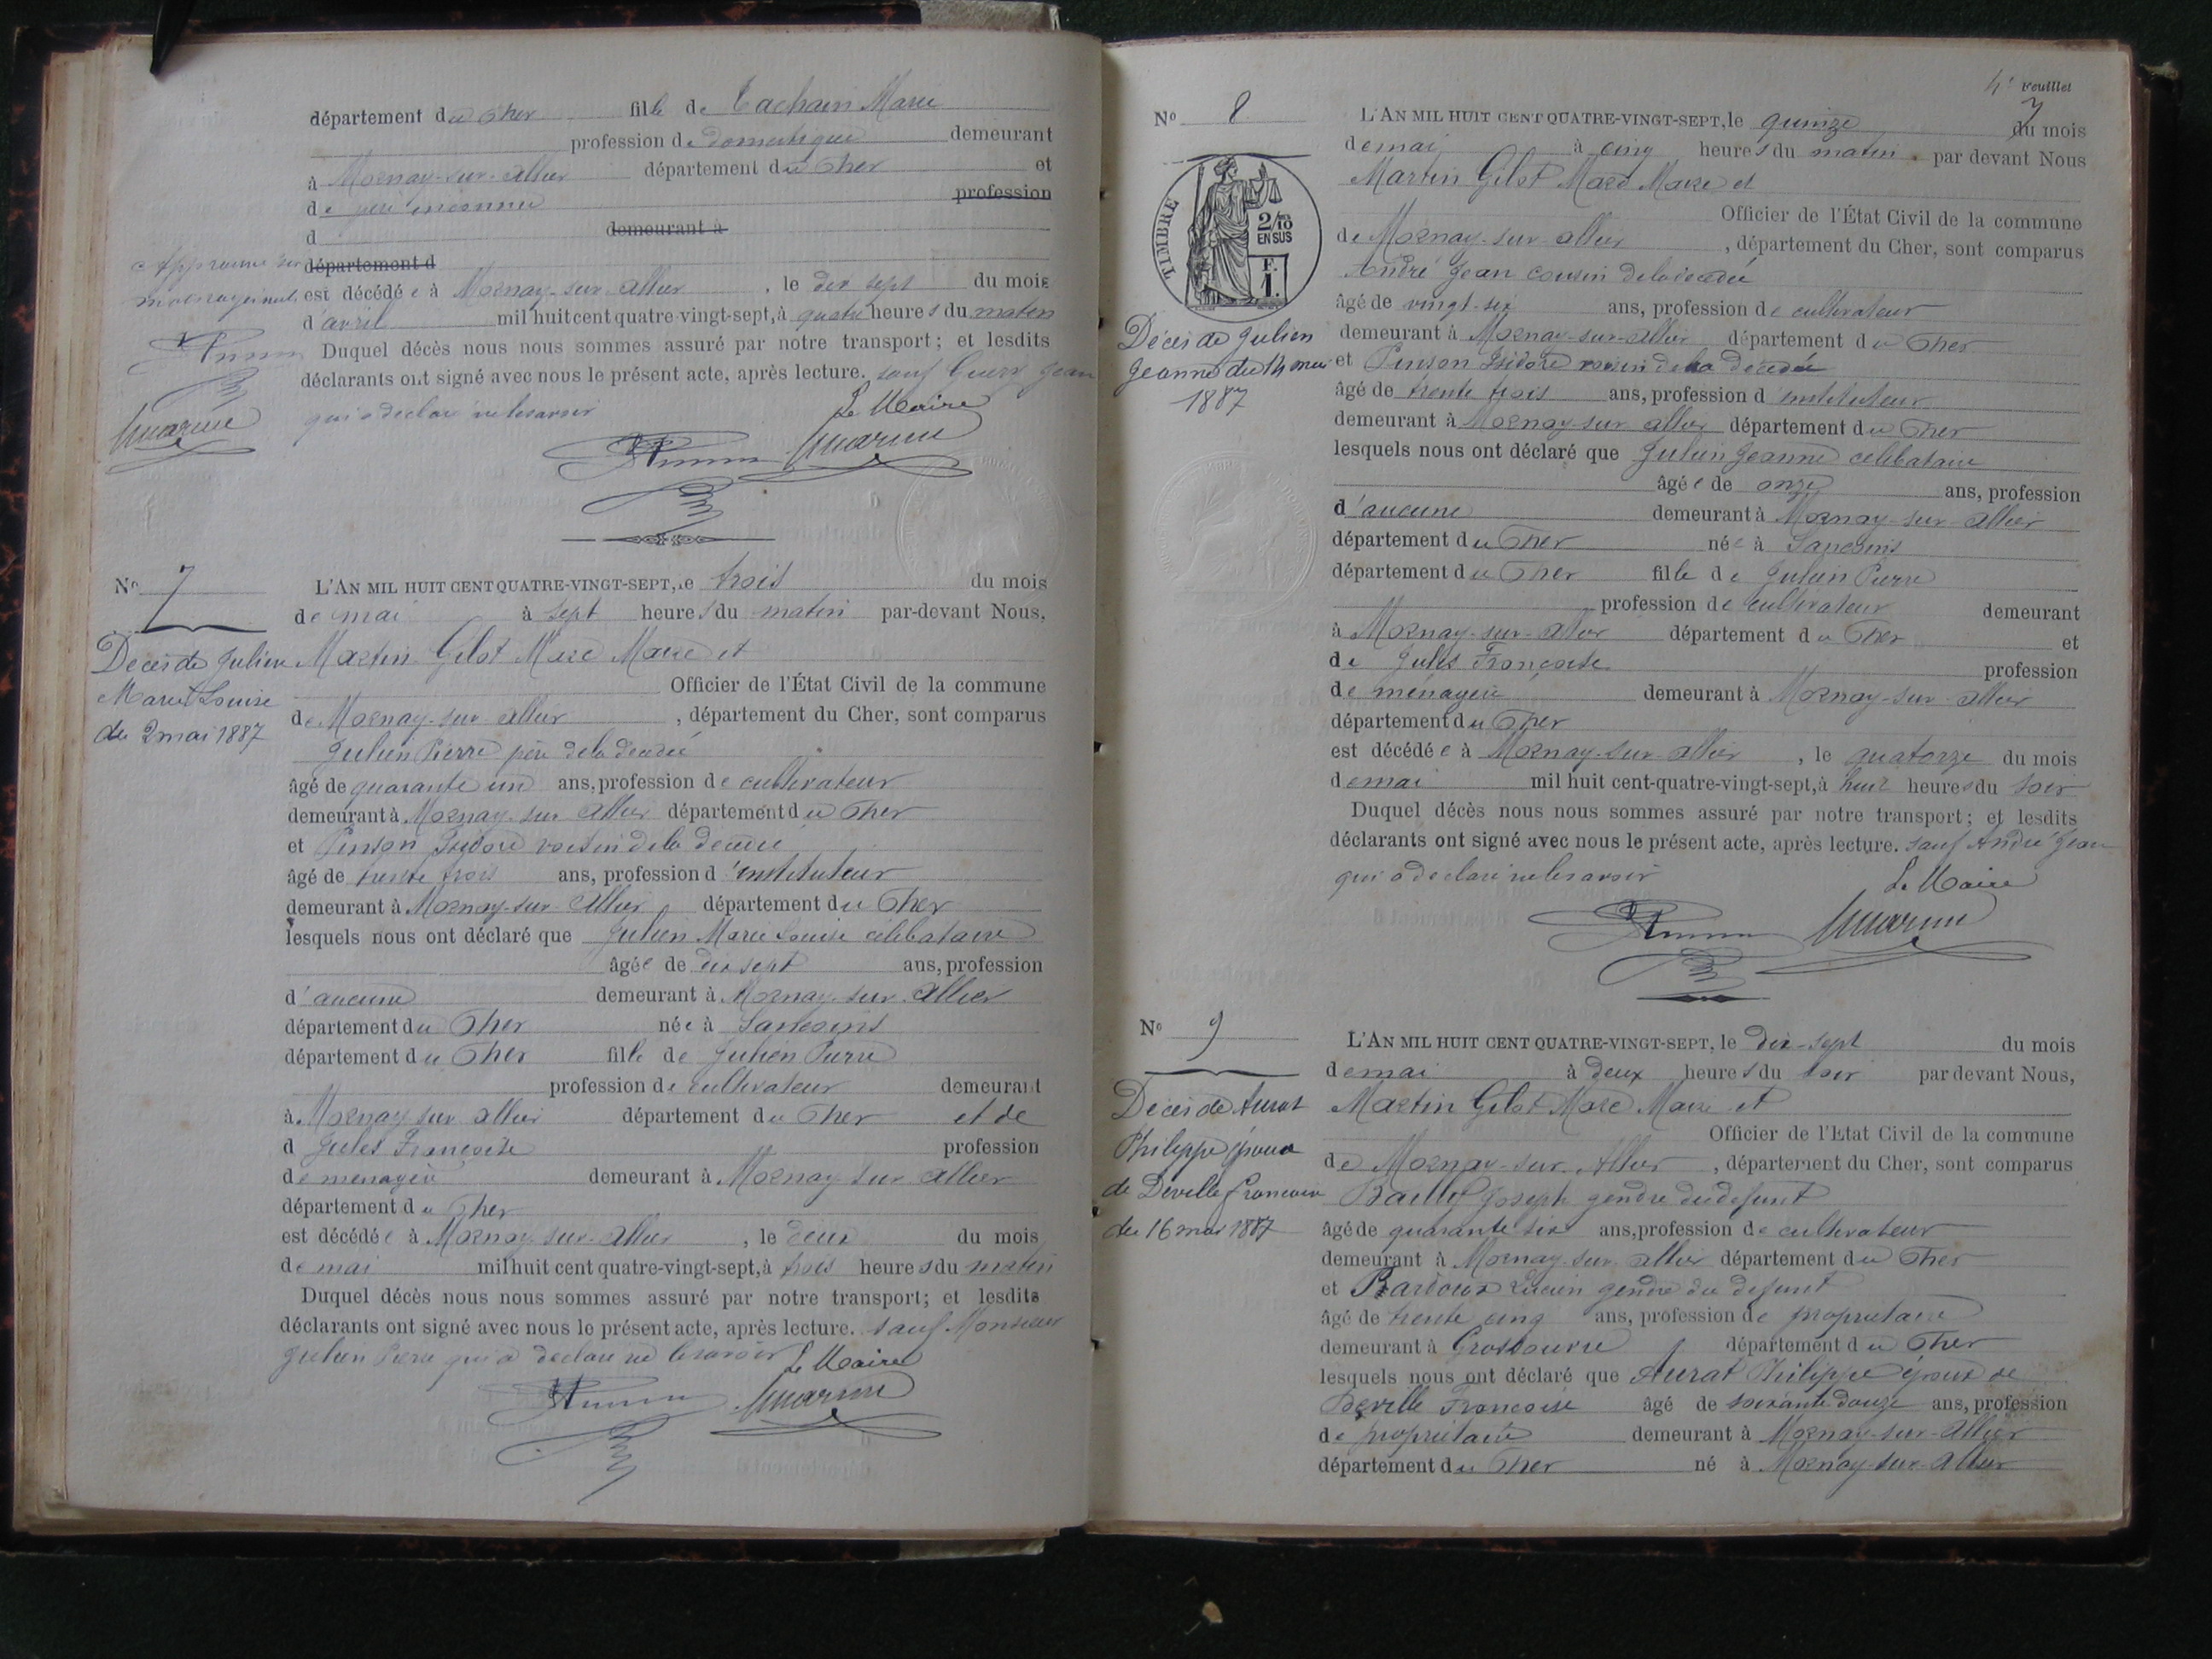 département du Cher fille de Tachain Marie
profession de domestique demeurant
à Mornay-sur-Allier département du Cher et
de père inconnu profession
d demeurant à
département d
est décédée à Mornay-sur-Allier, le dix sept du mois
d'avril mil huit cent quatre-vingt-sept, à quatre heures du matin
Duquel décès nous nous sommes assuré par notre transport; et lesdits
déclarants ont signé avec nous le présent acte, après lecture. sauf Guerx Jean
qui a déclaré ne le savoir
Le Maire
No 7
Décès de Julien
Marie Louise
du 2 mai 1887
L'AN MIL HUIT CENT QUATRE-VINGT-SEPT, le trois du mois
de mai à sept heures du matin par-devant Nous,
Martin Gilot Marc Maire et
Officier de l'État Civil de la commune
de Mornay-sur-Allier, département du Cher, sont comparus
Julien Pierre père de la décédée
âgé de quarante un ans, profession de cultivateur
demeurant à Mornay-sur-Allier département du Cher
et Pinson Isidore voisin de la décédée
âgé de trente trois ans, profession d'instituteur
demeurant à Mornay-sur-Allier département du Cher
lesquels nous ont déclaré que Julien Marie Louise célibataire
âgée de dix sept ans, profession
d'aucune demeurant à Mornay-sur-Allier
département du Cher née à Sancoins
département du Cher fille de Julien Pierre
profession de cultivateur demeurant
à Mornay-sur-Allier département du Cher et de
d Jules Françoise profession
de ménagère demeurant à Mornay-sur-Allier
département du Cher
est décédée à Mornay-sur-Allier, le deux du mois
de mai mil huit cent quatre-vingt-sept, à trois heures du matin
Duquel décès nous nous sommes assuré par notre transport; et lesdits
déclarants ont signé avec nous le présent acte, après lecture. sauf Monsieur
Julien Pierre qui a déclaré ne le savoir Le Maire
4e Feuillet
7
No 8
TIMBRE
2/10 EN SUS
F. 1.
Décès de Julien
Jeanne du 14 mai
1887
L'AN MIL HUIT CENT QUATRE-VINGT-SEPT, le quinze du mois
de mai à cinq heures du matin par devant Nous
Martin Gilot Marc Maire et
Officier de l'État Civil de la commune
de Mornay-sur-Allier, département du Cher, sont comparus
André Jean cousin de la décédée
âgé de vingt-six ans, profession de cultivateur
demeurant à Mornay-sur-Allier département du Cher
et Pinson Isidore voisin de la décédée
âgé de trente trois ans, profession d'instituteur
demeurant à Mornay-sur-Allier département du Cher
lesquels nous ont déclaré que Julien Jeanne célibataire
âgée de onze ans, profession
d'aucune demeurant à Mornay-sur-Allier
département du Cher née à Sancoins
département du Cher fille de Julien Pierre
profession de cultivateur demeurant
à Mornay-sur-Allier département du Cher et
de Jules Françoise profession
de ménagère demeurant à Mornay-sur-Allier
département du Cher
est décédée à Mornay-sur-Allier, le quatorze du mois
de mai mil huit cent-quatre-vingt-sept, à huit heures du soir
Duquel décès nous nous sommes assuré par notre transport; et lesdits
déclarants ont signé avec nous le présent acte, après lecture. sauf André Jean
qui a déclaré ne le savoir Le Maire
No 9
Décès de Aurat
Philippe époux
de Deville Françoise
du 16 mai 1887
L'AN MIL HUIT CENT QUATRE-VINGT-SEPT, le dix-sept du mois
de mai à deux heures du soir par devant Nous,
Martin Gilot Marc Maire et
Officier de l'Etat Civil de la commune
de Mornay-sur-Allier, département du Cher, sont comparus
Joseph gendre du défunt
âgé de quarante six ans, profession de cultivateur
demeurant à Mornay-sur-Allier département du Cher
et Bardoux Lucien gendre du défunt
âgé de trente cinq ans, profession de propriétaire
demeurant à Grossouvre département du Cher
lesquels nous ont déclaré que Aurat Philippe époux de
Deville Françoise âgé de soixante douze ans, profession
de propriétaire demeurant à Mornay-sur-Allier
département du Cher né à Mornay-sur-Allier